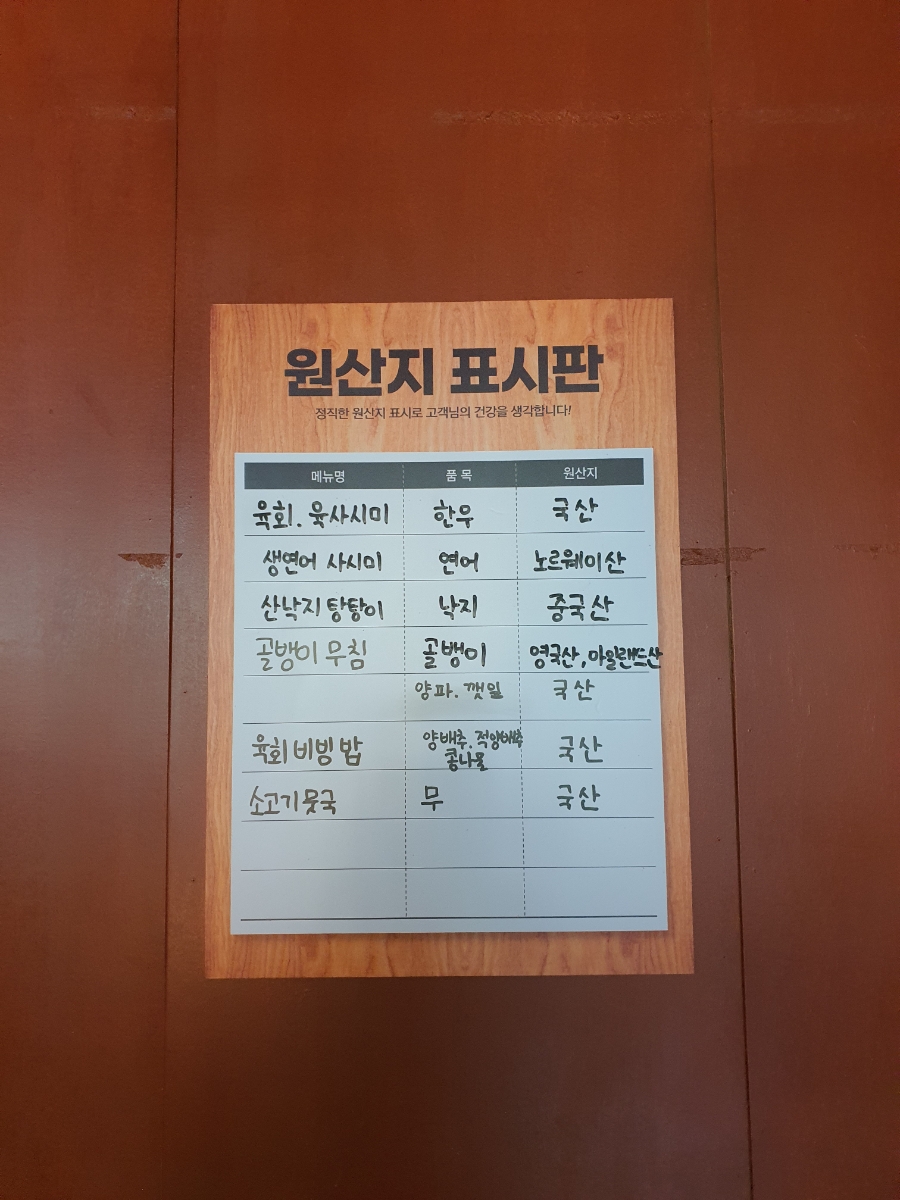 원산지 표시판
정직한 원산지 표시로 고객님의 건강을 생각합니다!
메뉴명 품 목 원산지
육회. 육사시미 한우 국산
생연어 사시미 연어 노르웨이산
산낙지 탕탕이 낙지 중국산
골뱅이 무침 골뱅이 영국산, 아일랜드산
양파. 깻잎 국산
육회비빔밥 양배추. 적양배추 국산
콩나물
소고기뭇국 무 국산